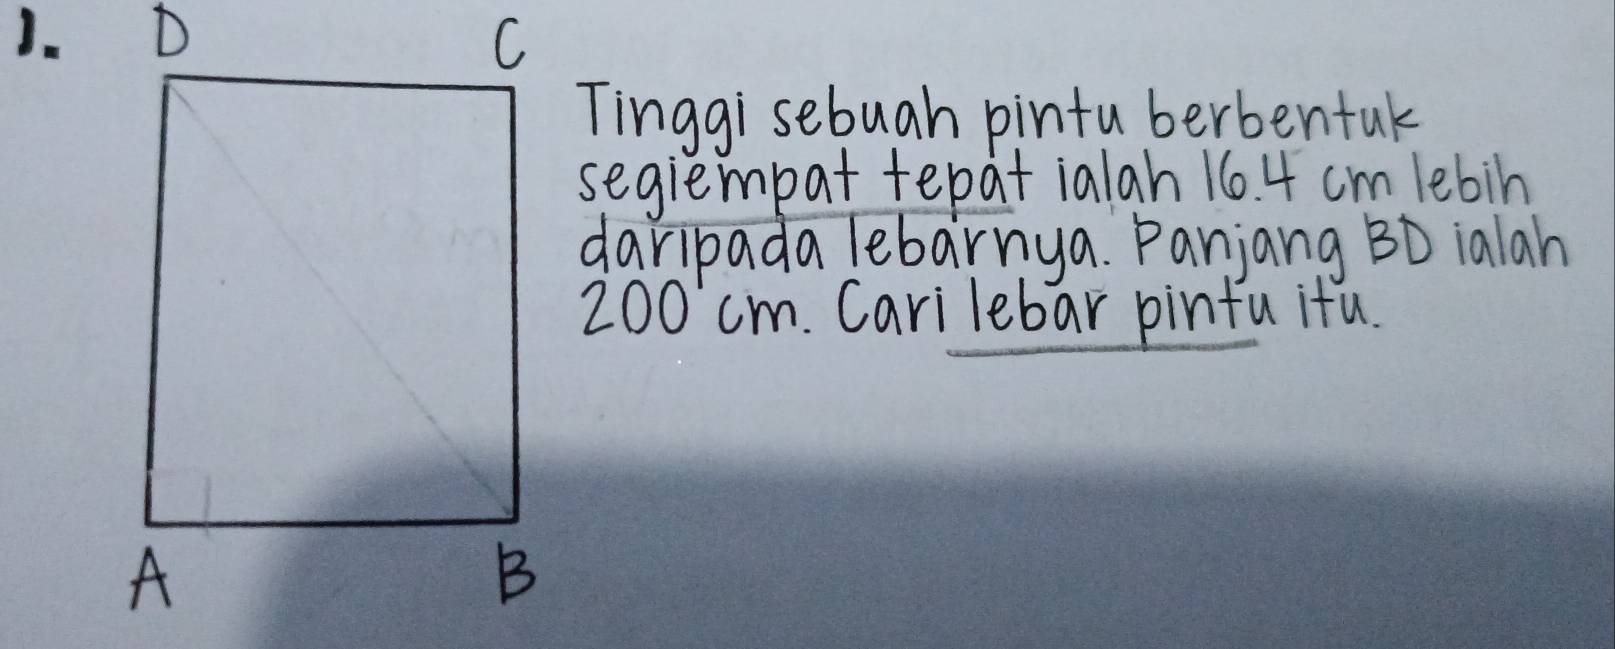 1.
D C
Tinggi sebuah pintu berbentuk
segiempat tepat ialah 16.4 cm lebih
daripada lebarnya. Panjang BD ialah
200 cm. Cari lebar pintu itu.
A B